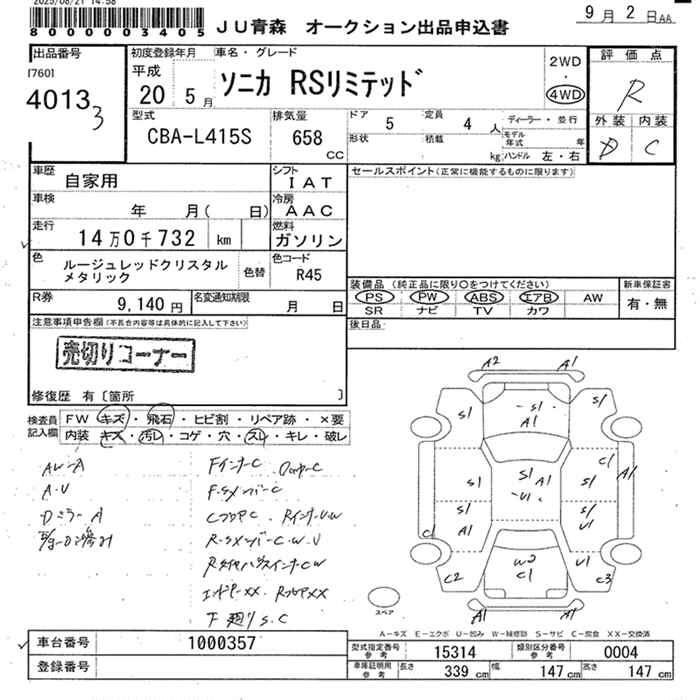 2025/08/21 14:58
800000003405
ＪＵ青森　オークション出品申込書
9月2日AA
出品番号
[760]
4013
3
初度登録年月
平成
20 5月
車名・グレード
ソニカ RSリミテッド
2WD
・
4WD
評価点
R
型式
CBA-L415S
排気量
658
CC
ドア
5
定員
4人
形状
積載
kg
ディーラー・並行
モデル年式
年
ハンドル 左・右
外装 内装
D C
車歴
自家用
シフト
IAT
セールスポイント(正常に機能するものに限ります)
車検
年 月( 日)
冷房
AAC
走行
14万0千732 km
燃料
ガソリン
色
ルージュレッドクリスタル
メタリック
色替
色コード
R45
装備品 (純正品に限り○をつけてください)
PS PW ABS エアB AW
SR ナビ TV カワ
新車保証書
有・無
R券
9,140円
名変通知期限
月 日
後日品
注意事項申告欄(不具合内容等は具体的に記入して下さい)
売切りコーナー
修復歴 有〔箇所 〕
検査員
記入欄
FW キズ・飛石・ヒビ割・リペア跡・×要
内装 キズ・汚レ・コゲ・穴・スレ・キレ・破レ
AW-A
A・U
Dミラー A
FインナーC
F・SメンバーC
CフロアC
R・SメンバーC・W・U
下廻りS.C
A2 A1
S1 S1 S/
A1
C1
S1 S1 A1 S/ A1
U1
S1 S/
A1 U1
C1
W3 U1
C2 C1 C3
A1 A1
スペア
A－キズ E－エクボ U－凹み W－補修跡 S－サビ C－腐食 XX－交換済
車台番号
1000357
登録番号
型式指定番号
参考
15314
類別区分番号
参考
0004
車庫証明用
参考
長さ 339 cm 幅 147 cm 高さ 147 cm